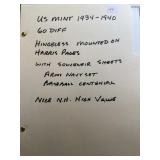 US MINT 1934-1940
60 DIFF
HINGELESS MOUNTED ON
HARRIS PAGES
WITH SOUVENIR SHEETS
ARMY NAVY SET
BASEBALL CENTENNIAL
NICE N.H. HIGH VALUE